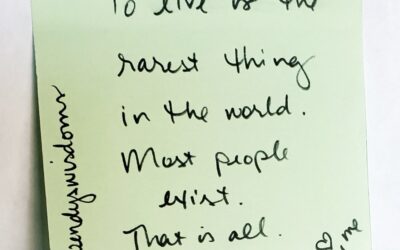 To live is the
rarest thing
in the world.
Most people
exist.
That is all.
♡, me